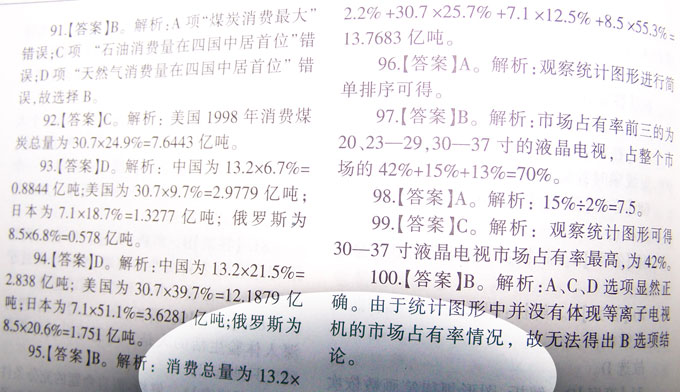 91.【答案】B。解析:A项“煤炭消费最大”
错误;C项 “石油消费量在四国中居首位”错
误;D项“天然气消费量在四国中居首位”错
误,故选择B。
92.【答案】C。解析:美国1998年消费煤
炭总量为30.7×24.9%=7.6443亿吨。
93.【答案】D。解析:中国为13.2×6.7%=
0.8844亿吨;美国为30.7×9.7%=2.9779亿吨;
日本为7.1×18.7%=1.3277亿吨;俄罗斯为
8.5×6.8%=0.578亿吨。
94.【答案】D。解析:中国为13.2×21.5%=
2.838亿吨;美国为30.7×39.7%=12.1879亿
吨;日本为7.1×51.1%=3.6281亿吨;俄罗斯为
8.5×20.6%=1.751亿吨。
95.【答案】B。解析:消费总量为13.2×
2.2%+30.7×25.7%+7.1×12.5%+8.5×55.3%=
13.7683亿吨。
96.【答案】A。解析:观察统计图形进行简
单排序可得。
97.【答案】B。解析:市场占有率前三的为
20、23—29,30—37寸的液晶电视,占整个市
场的42%+15%+13%=70%。
98.【答案】A。解析:15%÷2%=7.5。
99.【答案】C。解析:观察统计图形可得
30—37寸液晶电视市场占有率最高,为42%。
100.【答案】B。解析:A、C、D选项显然正
确。由于统计图形中并没有体现等离子电视
机的市场占有率情况,故无法得出B选项结
论。